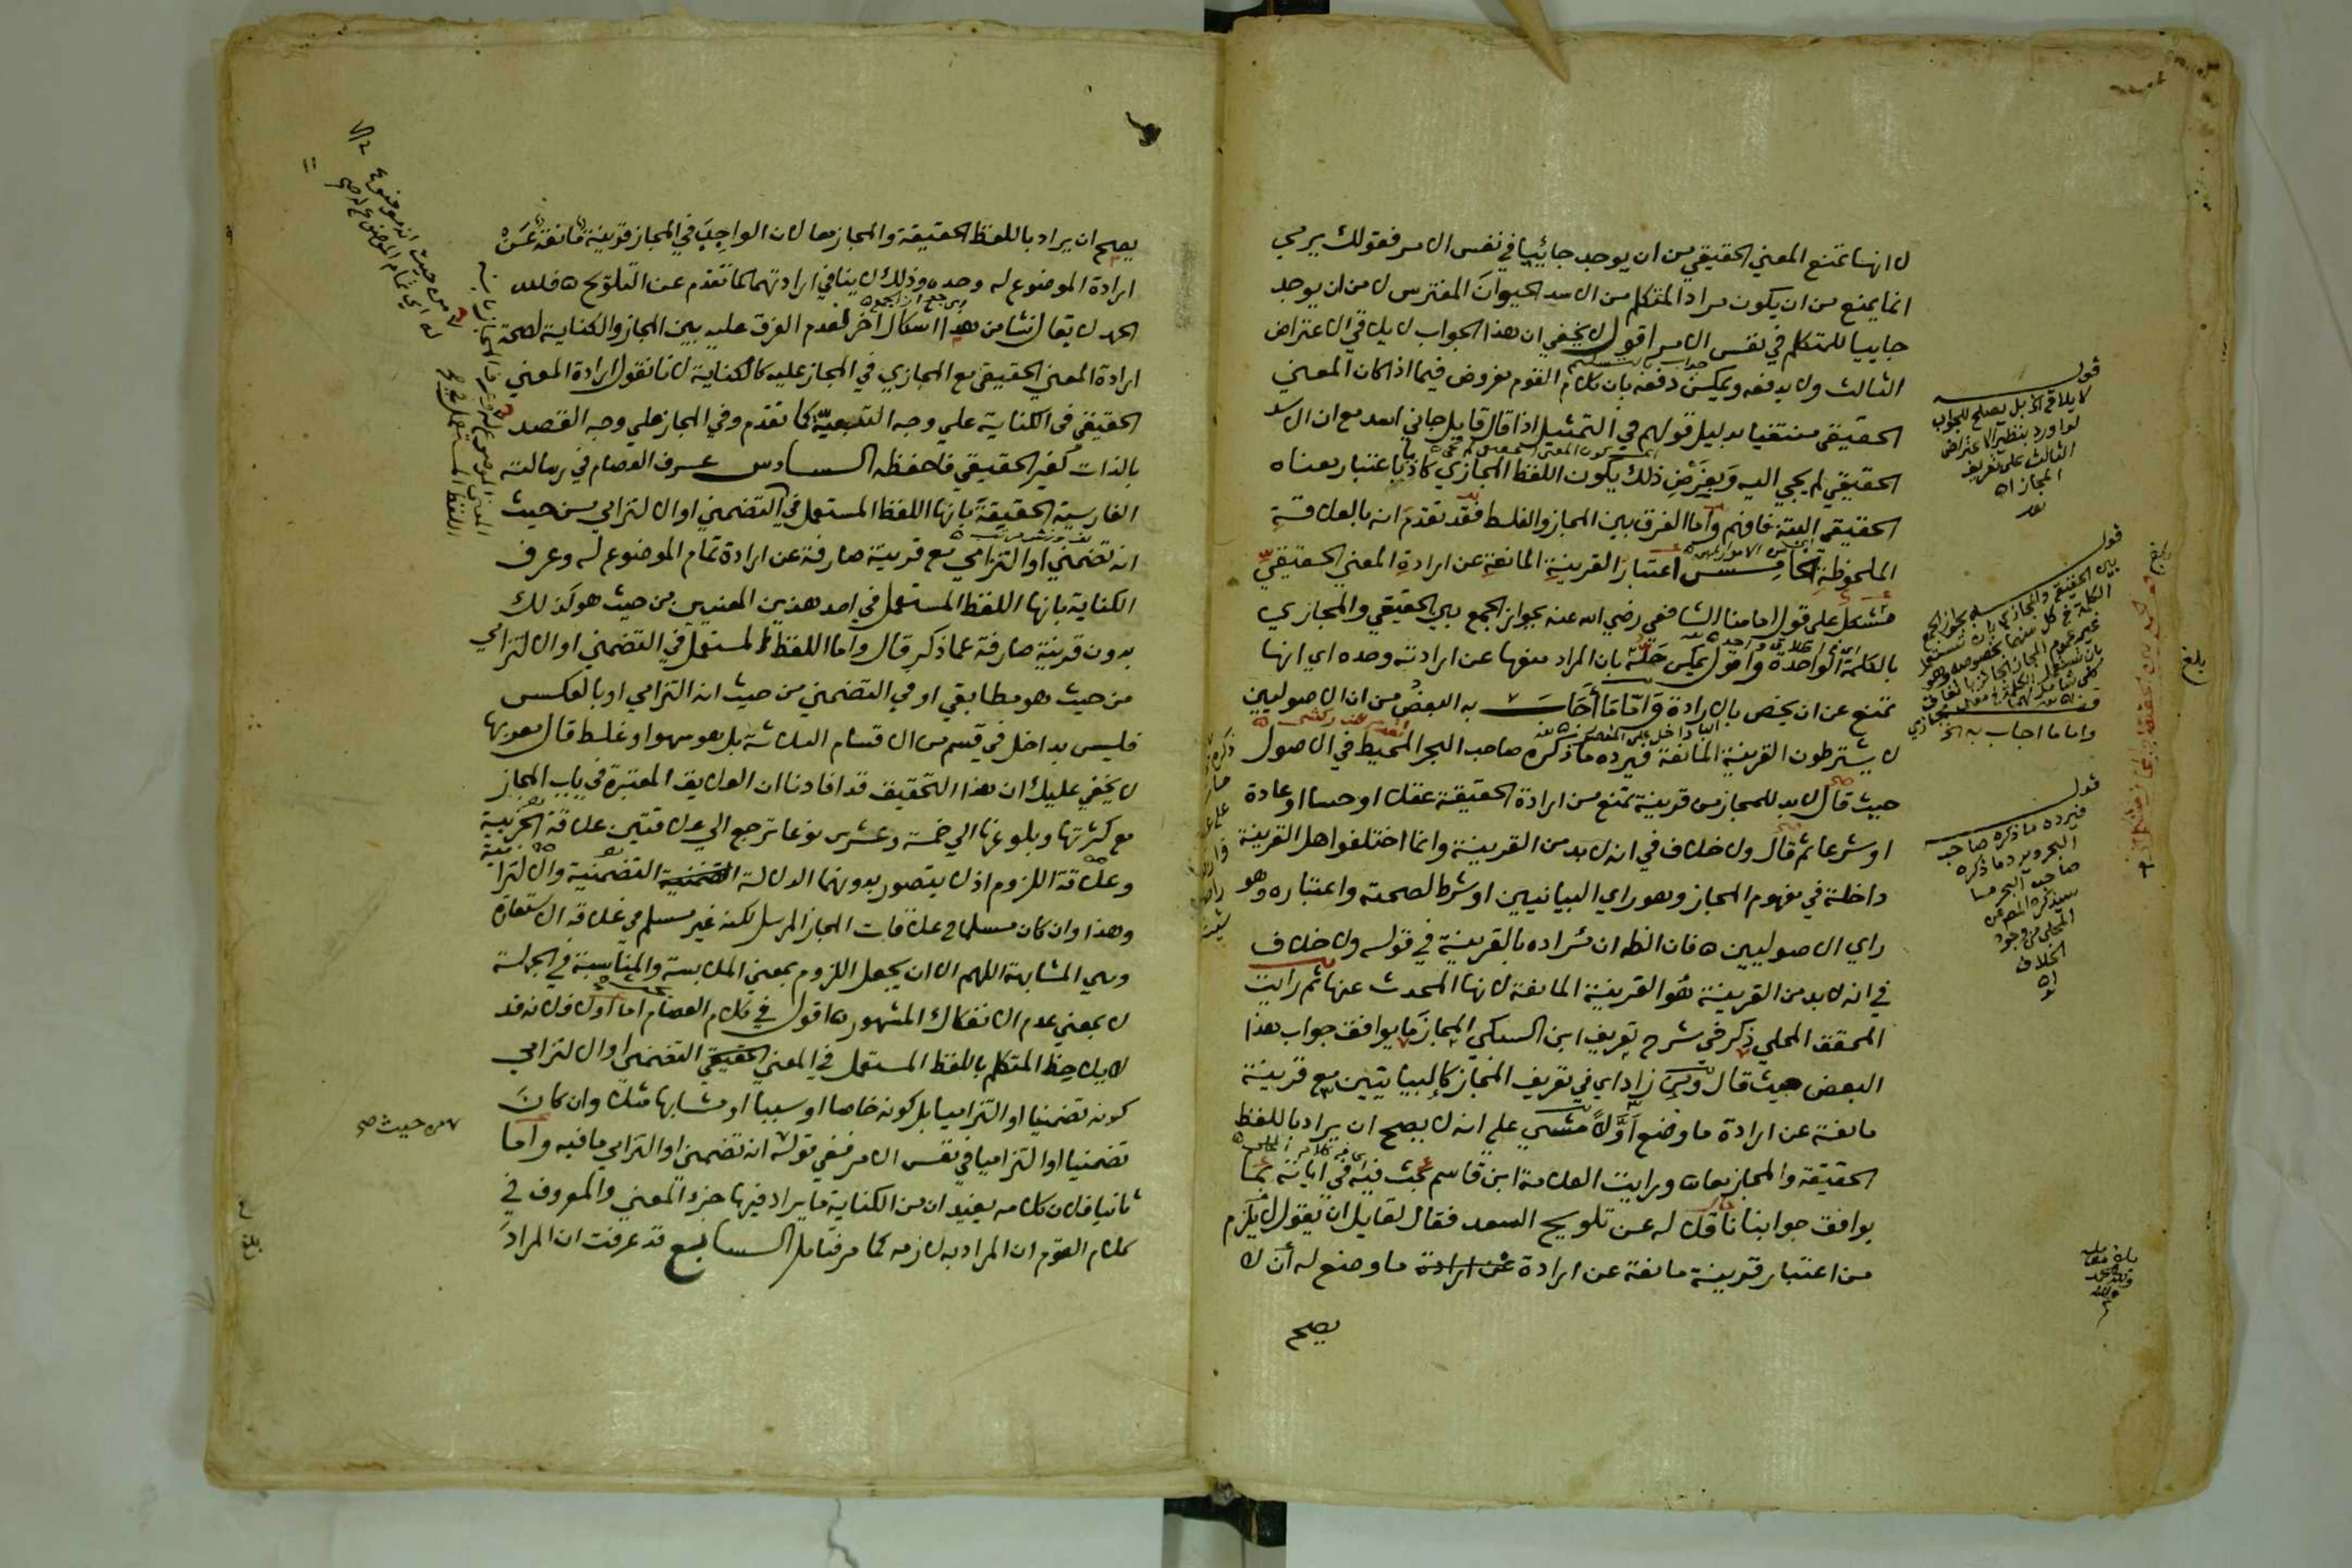 لانها تمنع المعني الحقيقي من ان يوجد جائيا في نفس الامر فقولك يرمي
انما يمنع من ان يكون مراد المتكلم من الاسد الحيوان المفترس لا من ان يوجد
جاييا للمتكلم في نفس الامر اقول لا يخفي ان هذا الجواب لا يلاقي الاعتراض
الثالث ولا يدفعه ويمكن دفعه بان كلام القوم مفروض فيما اذا كان المعني
الحقيقي منتفيا بدليل قولهم في التمثيل اذا قال قايل جاني اسد مع ان الاسد
الحقيقي لم يجي اليه وبفرض ذلك يكون اللفظ المجازي كاذبا باعتبار معناه
الحقيقي البتة فافهم واما الفرق بين المجاز والغلط فقد تقدم انه بالعلاقة
الملحوظة الخامس اعتبار القرينة المانعة عن ارادة المعني الحقيقي
مشكل على قول امامنا الشافعي رضي الله عنه بجواز الجمع بين الحقيقي والمجازي
بالكلمة الواحدة واقول يمكن حله بان المراد منعها عن ارادته وحده اي انها
تمنع عن ان يخص بالارادة واما ما اجاب به البعض من ان الاصوليين
لا يشترطون القرينة المانعة فيرده ما ذكره صاحب البحر المحيط في الاصول
حيث قال لا بد للمجاز من قرينة تمنع من ارادة الحقيقة عقلا او حسا او عادة
او شرعا ثم قال ولا خلاف في انه لا بد من القرينة وانما اختلفوا هل القرينة
داخلة في مفهوم المجاز وهو راي البيانيين او شرط لصحته واعتباره وهو
راي الاصوليين فان الظ ان مراده بالقرينة في قوله ولا خلاف
في انه لا بد من القرينة هو القرينة المانعة لانها المحدث عنها ثم رايت
المحقق المحلي ذكر في شرح تعريف ابن السبكي المجاز ما يوافق جواب هذا
البعض حيث قال ومن زاد اي في تعريف المجاز كالبيانيين مع قرينة
مانعة عن ارادة ما وضع له اولا مشي علي انه لا يصح ان يراد باللفظ
الحقيقة والمجاز معا ورايت العلامة ابن قاسم بحث فيه في اياته بما
يوافق جوابنا ناقلا له عن تلويح السعد فقال لقايل ان يقول لا يلزم
من اعتبار قرينة مانعة عن ارادة عن ارادة ما وضع له ان لا
يصح
قوله
لا يلاقي الخ بل يصلح للجواب
لو اورد بنظير الاعتراض
الثالث على تعريف
المجاز اه
قوله
بجواز الجمع
بين الحقيقي والمجازي
واما ما اجاب به الخ
قوله
فيرده ما ذكره صاحب
البحر ويرد ما ذكره
صاحب البحر ما
سيذكره المص عن
المحلي من وجود
الخلاف
اه
بلغ
يصح ان يراد باللفظ الحقيقة والمجاز معا لان الواجب في المجاز قرينة مانعة عن
ارادة الموضوع له وحده وذلك لا ينافي ارادتهما كما تقدم عن التلويح فلله
الحمد لا يقال نشا من هذا اشكال اخر لعدم الفرق عليه بين المجاز والكناية لصحة
ارادة المعني الحقيقي مع المجازي في المجاز عليه كالكناية لانا نقول ارادة المعني
الحقيقي في الكناية علي وجه التبعية كما تقدم وفي المجاز علي وجه القصد
بالذات كغير الحقيقي فاحفظه السادس عرف العصام في رسالته
الفارسية الحقيقة بانها اللفظ المستعمل في التضمني او الالتزامي من حيث
انه تضمني او التزامي مع قرينة صارفة عن ارادة تمام الموضوع له وعرف
الكناية بانها اللفظ المستعمل في احد هذين المعنيين من حيث هو كذلك
بدون قرينة صارفة عما ذكر قال واما اللفظ المستعمل في التضمني او الالتزامي
من حيث هو مطابقي او في التضمني من حيث انه التزامي او بالعكس
فليس بداخل في قسم من الاقسام الثلاثة بل هو سهو او غلط قال معربها
لا يخفي عليك ان هذا التحقيق قد افادنا ان العلايق المعتبرة في باب المجاز
مع كثرتها وبلوغها الي خمسة وعشرين نوعا ترجع الي علاقتين علاقة الجزيية
وعلاقة اللزوم اذ لا يتصور بدونهما الدلالة التضمنية التضمنية والالتزامية
وهذا وان كان مسلما في علاقات المجاز المرسل لكنه غير مسلم في علاقة الاستعارة
وهي المشابهة اللهم الا ان يجعل اللزوم بمعني الملابسة والمناسبة في الجملة
لا بمعني عدم الانفكاك المشهور اقول في كلام العصام اما اولا فلانه قد
لا يلاحظ المتكلم باللفظ المستعمل في المعني الحقيقي التضمني او الالتزامي
كونه تضمنيا او التزاميا بل كونه خاصا او سببا او مشابها مثلا وان كان
تضمنيا او التزاميا في نفس الامر ففي قوله انه تضمني او التزامي ما فيه واما
ثانيا فلان كلامه يفيد ان من الكناية ما يراد فيها جزء المعني والمعروف في
كلام القوم ان المراد به لازمه كما مر فتامل السابع قد عرفت ان المراد
من حيث صح
بلغ